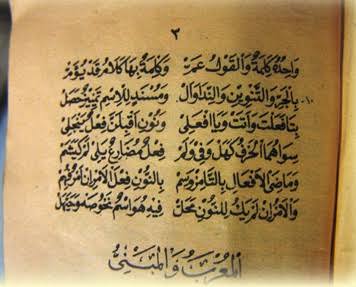 ٢
وَاحِدُهُ كَلِمَةٌ وَالْقَوْلُ عَمّ وَكَلِمَةٌ بِهَا كَلَامٌ قَدْ يُؤَمّ
١٠- بِالْجَرِّ وَالتَّنْوِينِ وَالنِّدَا وَأَلْ وَمُسْنَدٍ لِلِاسْمِ تَمْيِيزٌ حَصَلْ
بِتَا فَعَلْتَ وَأَتَتْ وَيَا افْعَلِي وَنُونِ أَقْبِلَنَّ فِعْلٌ يَنْجَلِي
سِوَاهُمَا الْحَرْفُ كَهَلْ وَفِي وَلَمْ فِعْلٌ مُضَارِعٌ يَلِي لَمْ كَيَشَمْ
وَمَاضِيَ الْأَفْعَالِ بِالتَّا مِزْ وَسِمْ بِالنُّونِ فِعْلَ الْأَمْرِ إِنْ أَمْرٌ فُهِمْ
وَالْأَمْرُ إِنْ لَمْ يَكُ لِلنُّونِ مَحَلّ فِيهِ هُوَ اسْمٌ نَحْوُ صَهْ وَحَيَّهَلْ
الْمُعْرَبُ وَالْمَبْنِيُّ